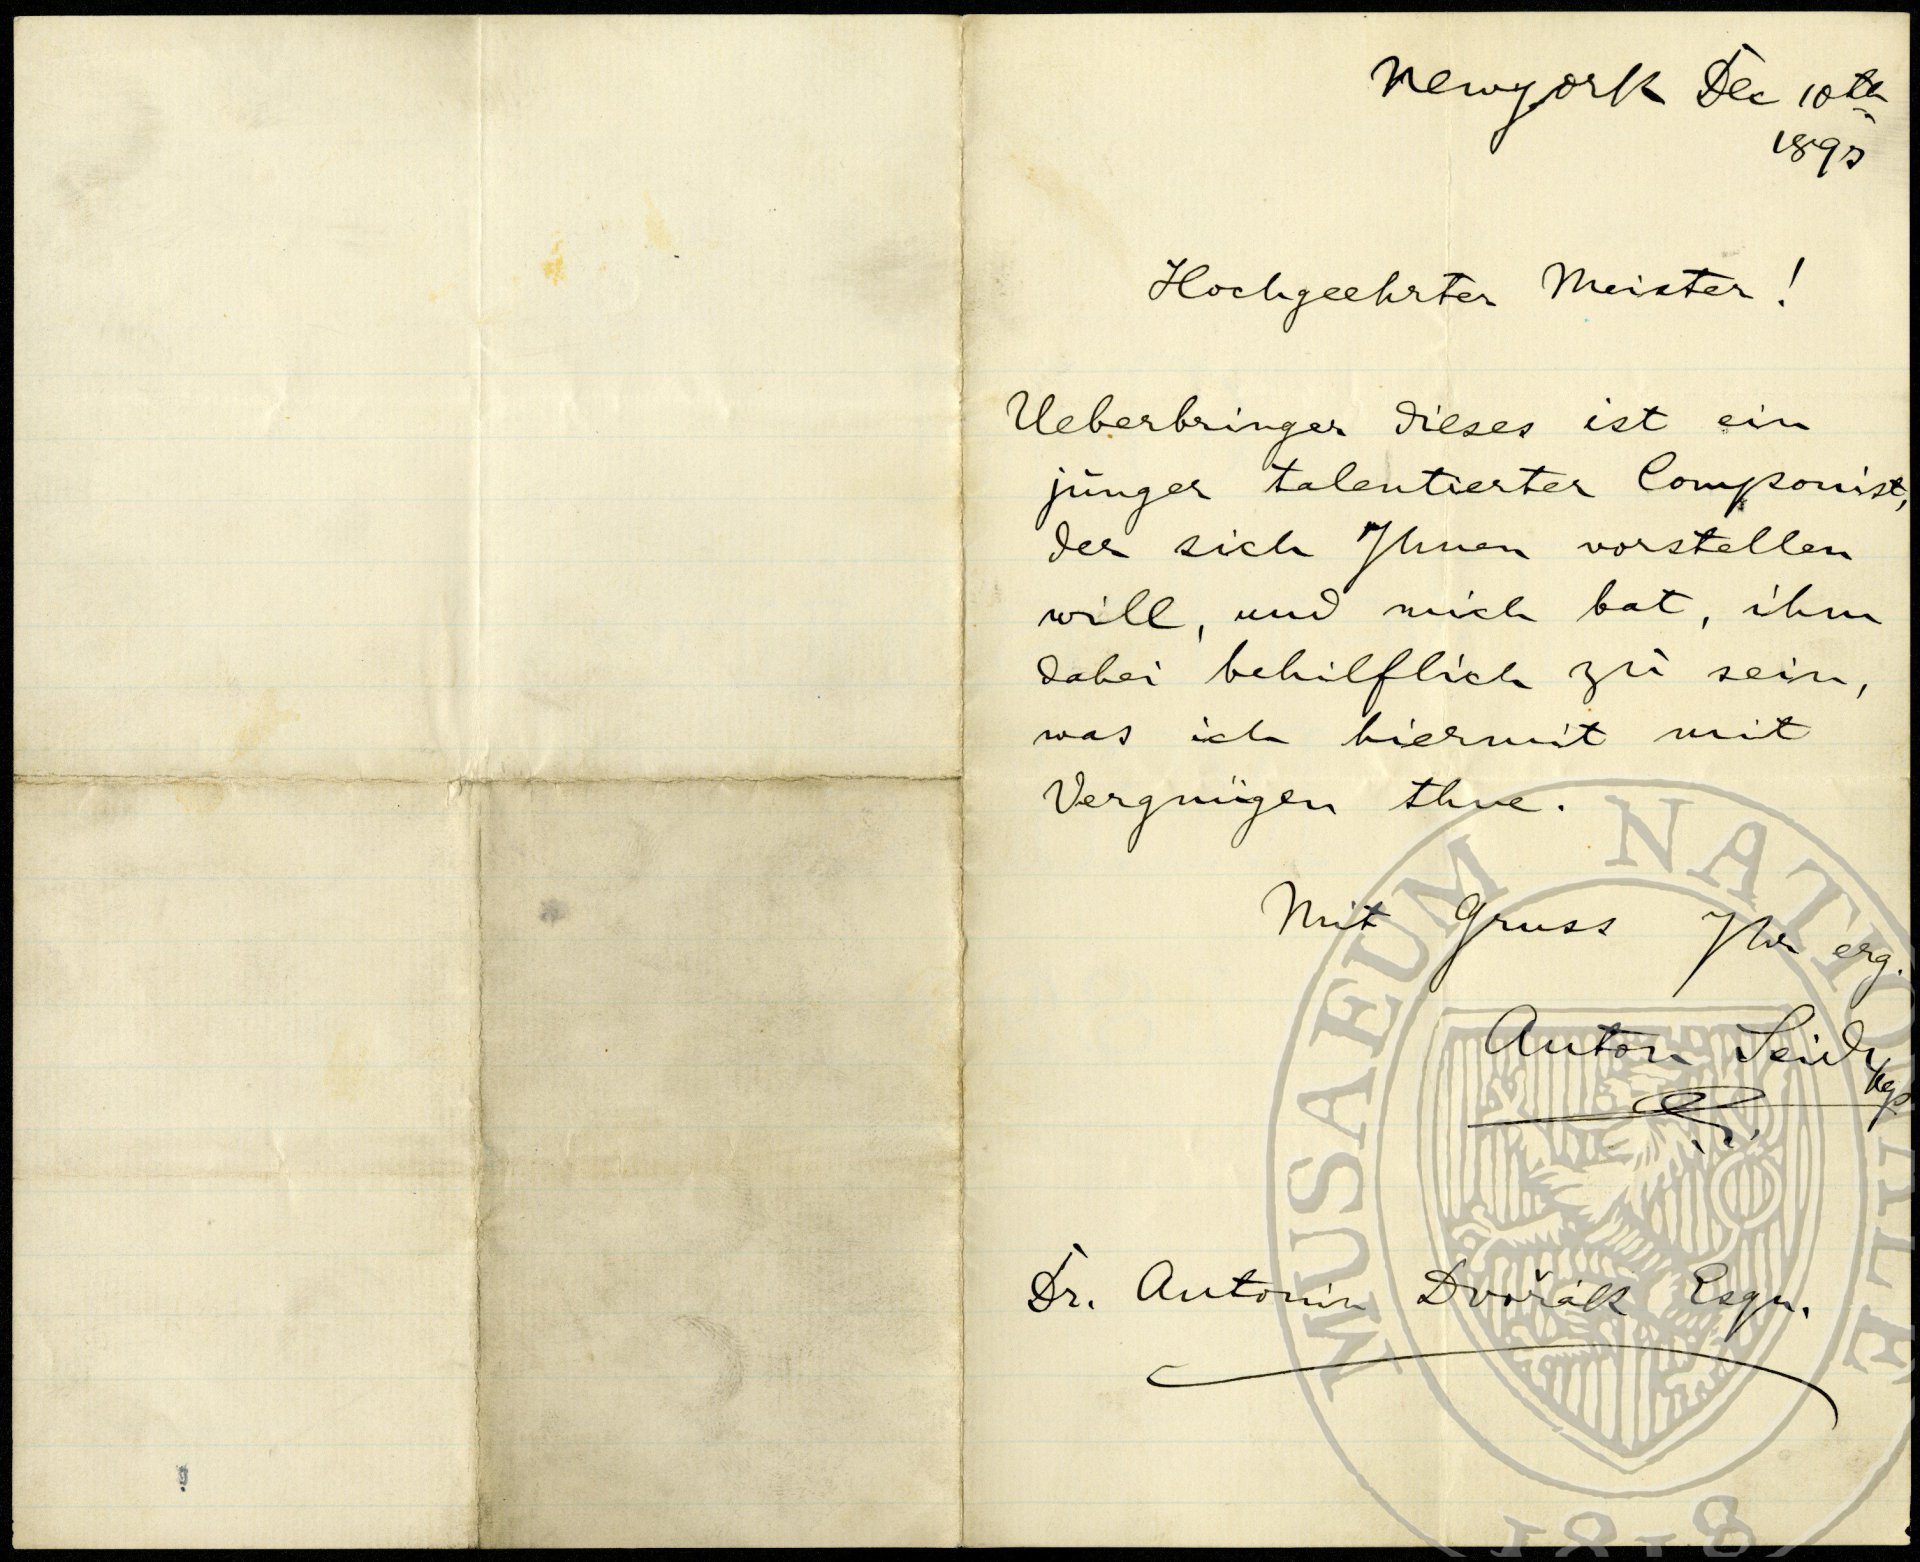 Newyork Dec 10th
189
Hochgeehrter Meister!
Ueberbringer dieses ist ein
junger talentierter Componist,
der sich Ihnen vorstellen
will, und mich bat, ihm
dabei behilflich zu sein,
was ich hiermit mit
Vergnügen thue.
Mit Gruss Ihr erg.
Anton Seidl
Dr. Antonin Dvořák Esqu.
MUSAEUM NATIONALE
1818